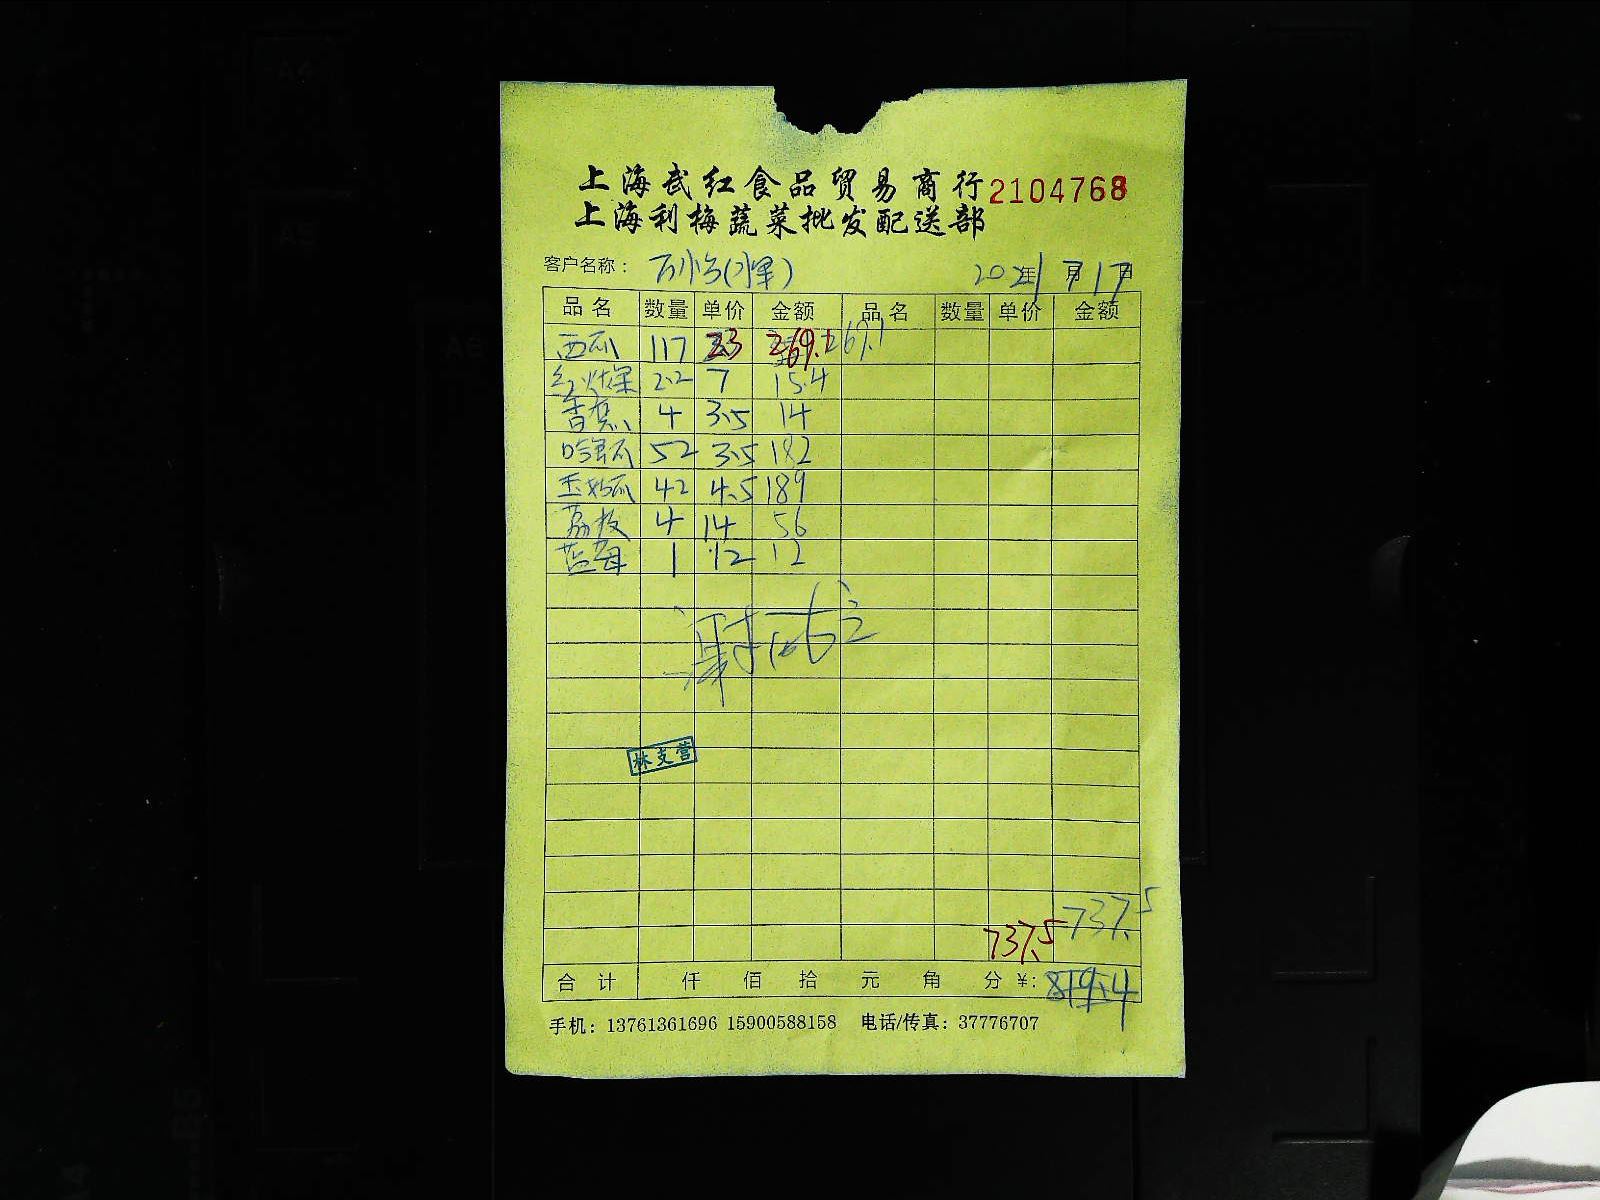 上海武红食品贸易商行 2104768
上海利梅蔬菜批发配送部
客户名称： 年 月 17 日
品名 数量 单价 金额 品名 数量 单价 金额
西瓜 117 2.3 269.1 269.1
2.2 7 15.4
香蕉 4 3.5 14
哈密瓜 52 3.5 182
玉菇瓜 42 4.5 189
荔枝 4 14 56
蓝莓 1 12 12
林支营
737.5 737.5
合计 仟 佰 拾 元 角 分 ¥: 819.4
手机：13761361696 15900588158 电话/传真：37776707